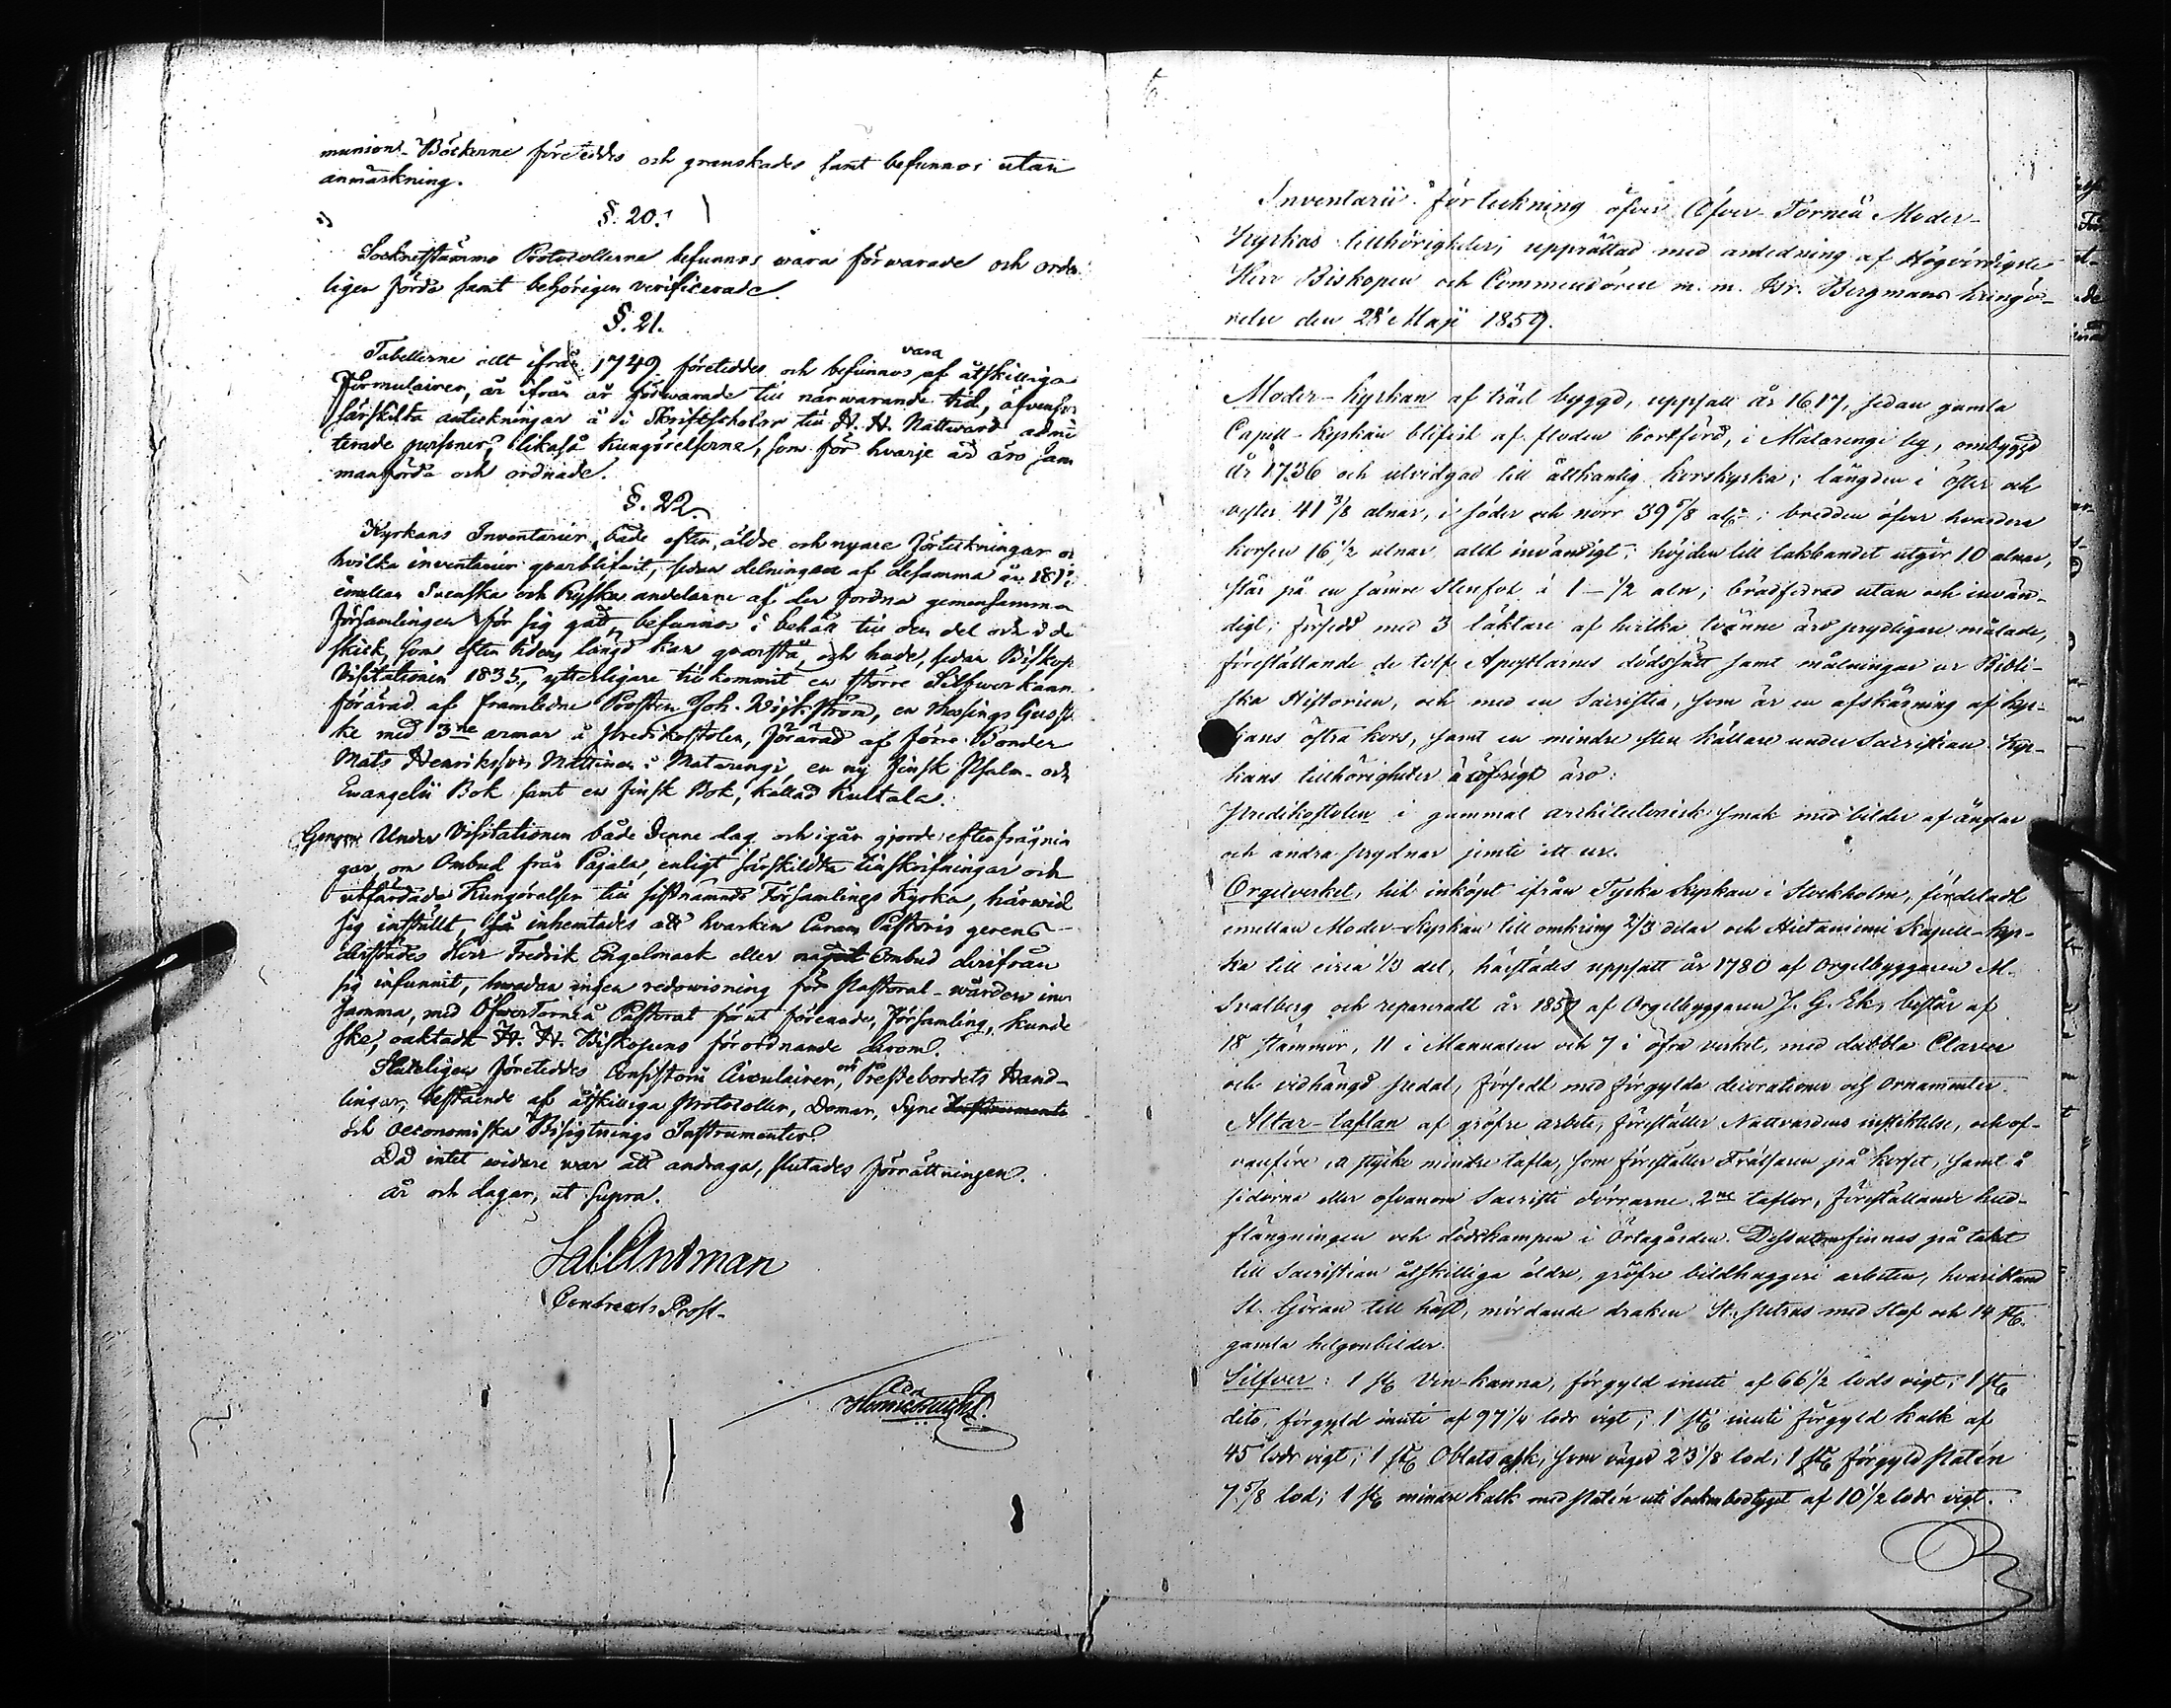 munions-Böckerne företeddes och granskades samt befunnos utan
anmärkning.
§. 20.
Socknestämmo Protocollerna befunnos wara förwarade och orde
ligen förda samt behörigen verificerade.
§. 21.
Tabellerne allt ifrån 1749 företeddes och befunnos vara af åtskilliga
Formulairer, år ifrån år förwarade till närwarande tid, äfvensom
särskilta anteckningar å de i Skriftskolor till H. H. Nattward admit
terade personer; likaså Kungörelserne, som för hvarje år äro sam
manförda och ordnade.
§. 22.
Kyrkans Inventarier, både efter äldre och nyare förteckningar oc
hvilka inventarier qvarblifvit, sedan delningen af desamma år 181
emellan Svenska och Ryska andelarne af den fordna gemensamma
Församlingen för sig gått, befunnos i behåll till den del och i de
skick, som efter tidens längd kan qvarstå, och hade, sedan Biskops
Visitationen 1835, ytterligare tillkommit en större Silfwer kanna
förärad af framledne Prosten Joh. Wijkström, en Messings ljussta
ke med 3ne armar å Predikostolen, förärad af förre Bonden
Mats Henriksson Nittinen i Matarengi, en ny Finsk Psalm- och
Ewangelii Bok samt en Finsk Bok, kallad Kultala.
Under Visitationen både denne dag och igår gjordes efterfrågnin
gar, om Ombud från Pajala, enligt särskildta tillskrifningar och
utfärdade Kungörelsen till sistnämnde Församlings Kyrka, härwid
sig inställt, så inhemtades att hwarken Curam Pastoris gerens
derstädes Herr Fredrik Engelmark eller något Ombud derifrån
sig infunnit, hwadan ingen redowisning för Pastoral-wården inom
samma, med Öfwer Torneå Pastorat förut förenade, Församling, kunde
ske, oaktadt H. H. Biskopens förordnande derom.
Slutligen företeddes Consistorii Circulairer, och Prestebordets Hand-
lingar, bestående af åtskilliga Protocoller, Domar, Syne Instrumenter
och Oeconomiska Besigtnings Instrumenter.
Då intet widare war att andraga, slutades förrättningen.
År och dagar, ut supra.
Antman
Contracts Prost.
Inventarii Förteckning öfver Öfver-Torneå Moder-
Kyrkas tillhörigheter, upprättad med anledning af Högvördigste
Herr Biskopen och Commendören m. m. Dr. Bergmans kringö-
relse den 28 Maji 1859.
Moder-Kyrkan af träd byggd, uppsatt år 1617, sedan gamla
Capell-Kyrkan blifvit af floden bortförd, i Matarengi by, ombyggd
år 1736 och utvidgad till åttkantig korskyrka; längden i öster och
vester 41 3/8 alnar, i söder och norr 39 5/8 aln; bredden öfver hvardera
korsen 16 1/2 alnar, allt invändigt; höjden till takbandet utgör 10 alnar,
står på en jämn stenfot à 1 - 1/2 aln; brädfodrad utan och invän-
digt; försedd med 3 läktare af hvilka tvänne äro prydligare målade,
föreställande de tolf Apostlarnes dödssätt samt målningar ur Bibli-
ska Historien, och med en Sacristia, som är en afskärning af kyr-
kans östra kors, samt en mindre sten källare under Sacristian. Kyr-
kans tillhörigheter i öfrigt äro:
Predikostolen i gammal architectonisk smak med bilder af änglar
och andra prydnar jemte ett ur.
Orgelverket, hit inköpt ifrån Tyska Kyrkan i Stockholm, fördeladt
emellan Moder-Kyrkan till omkring 2/3 delar och Hietaniemi Kapell-kyr-
ka till circa 1/3 del, härstädes uppsatt år 1780 af Orgelbyggaren M.
Svalberg och repareradt år 1859 af Orgelbyggaren J. G. Ek, består af
18 stämmor, 11 i Manualen och 7 i öfra verket, med dubbla Claver
och vidhängd pedal, försedt med förgylda decorationer och ornamenter.
Altar-taflan af gröfre arbete, föreställer Nattvardens instiktelse, och of-
vanföre ett stycke mindre tafla, som föreställer Frälsaren på korset, samt å
sidorna eller ofvanom Sacristi dörrarne 2ne taflor, föreställande hud-
flängningen och dödskampen i Örtagården. Dessutom finnas på taket
till Sacristian åtskilliga äldre, gröfre bildhuggeri arbeten, hvaribland
St. Göran till häst, mördande draken, St. Petrus med staf och 14 st.
gamla helgonbilder.
Silfver: 1 st. Vin-kanna, förgyld inuti af 66 1/2 lods vigt; 1 st.
dito, förgyld inuti af 97 1/4 lods vigt; 1 st. inuti förgyld kalk af
45 lods vigt; 1 st. Oblats ask, som väger 23 1/8 lod; 1 st. förgyld Patén
7 5/8 lod; 1 st. mindre kalk med Patén uti Sockenbudtyget af 10 1/2 lods vigt.